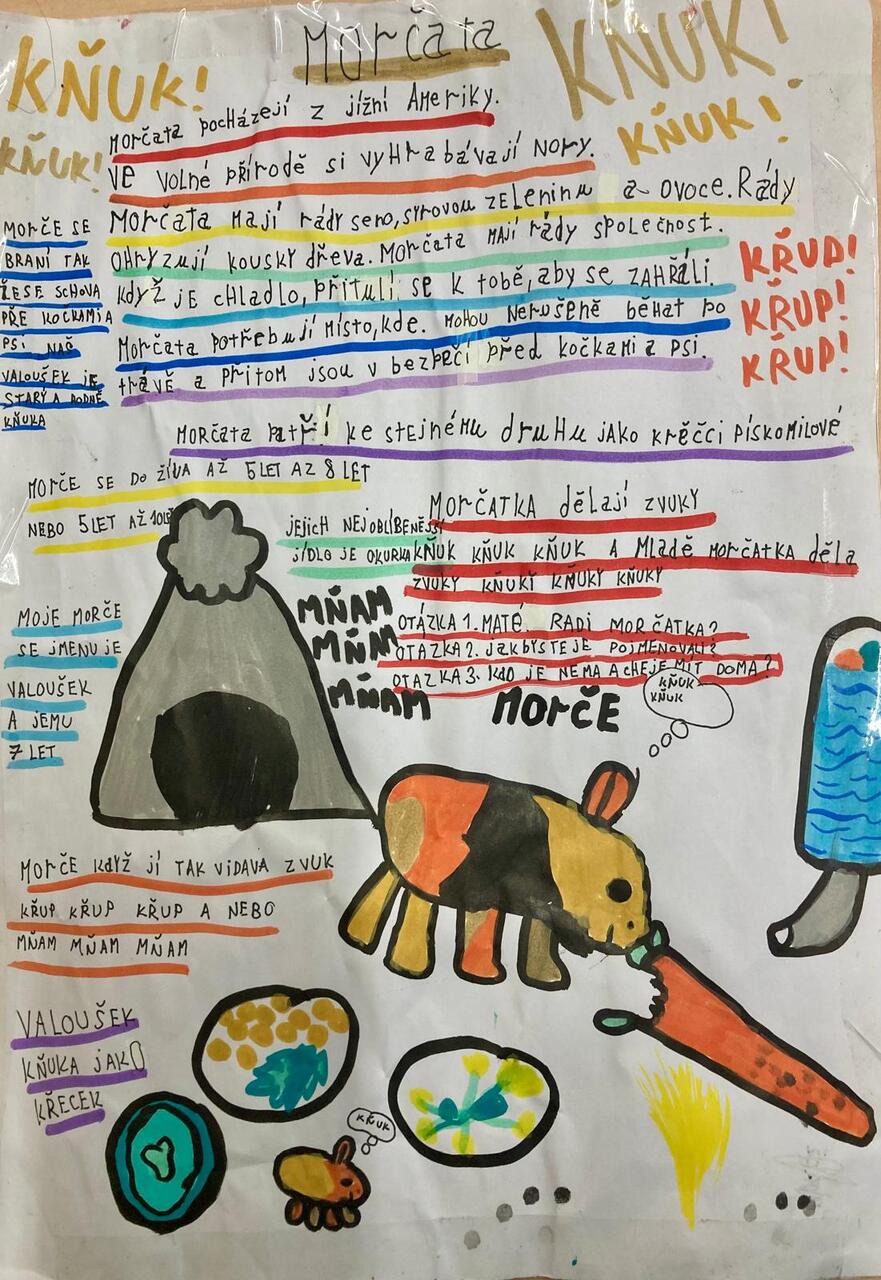 Morčata
KŇUK!
KŇUK!
KŇUK!
KŇUK!
Morčata pocházejí z jížní Ameriky.
Ve volné přírodě si vyhrabávají nory.
Morčata mají rády seno, syrovou zeleninu a ovoce. Rády
ohryzují kousky dřeva. Morčata mají rády společnost.
když je chladlo, přitulí se k tobě, aby se zahřáli.
Morčata potřebují místo, kde. mohou nerušeně běhat po
trávě a přitom jsou v bezpečí před kočkami a psi.
MORČE SE
BRANÍ TAK
ŽESE SCHOVA
PŘE KOČKAMIA
PSI NAŠ
VALOUŠEK JE
STARÝ A HODNĚ
KŇUKA
KŘUD!
KŘUP!
KŘUP!
Morčata patří ke stejnému druhu jako křečci pískomilové
MORČE SE DO ŽIVA AŽ 5LET AZ 8 LET
NEBO 5LET AŽ 10LET
JEJICH NEJOBLÍBENĚJŠÍ
JÍDLO JE OKURKA
MORČATKA dělají ZVUKY
KŇUK KŇUK KŇUK A Mladě MORČATKA děla
ZVUKY KŇUKY KŇUKY KŇUKY
OTÁZKA 1. MATÉ RADI MORČATKA?
OTAZKA 2. JAK BYSTE JE POJMENOVALI?
OTAZKA 3. KDO JE NEMA A CHEJE MIT DOMA?
MŇAM
MŇM
MŇAM
MORČE
KŇUK
KŇUK
MOJE MORČE
SE JMENUJE
VALOUŠEK
A JEMU
7 LET
MORČE KdYŽ jí TAK VIDAVA ZVUK
KŘUP KŘUP KŘUP A NEBO
MŇAM MŇAM MŇAM
VALOUŠEK
KŇUKA JAKO
KŘECEK
KŇUK